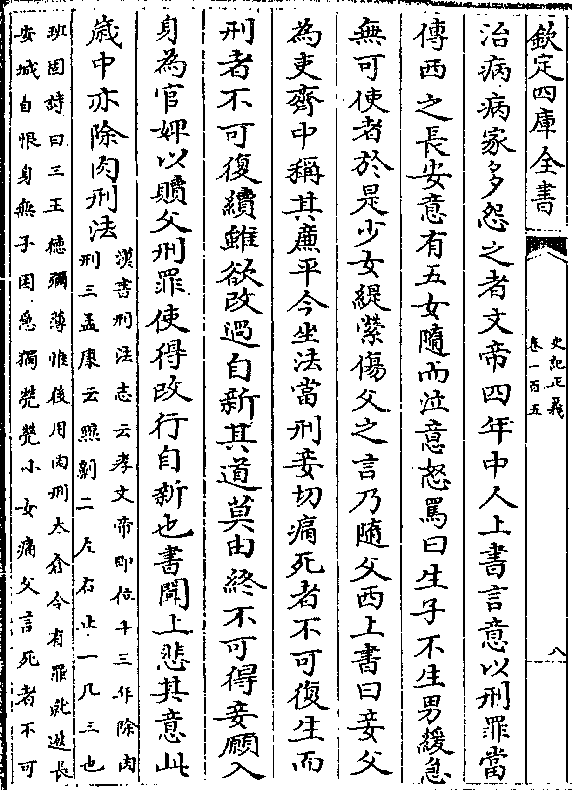 欽定四庫全書
史記正義
卷一百五
八
治病病家多怨之者文帝四年中人上書言意以刑罪當
傳西之長安意有五女隨而泣意怒罵曰生子不生男緩急
無可使者於是少女緹縈傷父之言乃隨父西上書曰妾父
為吏齊中稱其廉平今坐法當刑妾切痛死者不可復生而
刑者不可復續雖欲改過自新其道莫由終不可得妾願入
身為官婢以贖父刑罪使得改行自新也書聞上悲其意此
歲中亦除肉刑法
漢書刑法志云孝文帝即位十三年除肉
刑三孟康云黥劓二左右止一凡三也
班固詩曰三王德彌薄惟後用肉刑太倉令有罪就逮長
安城自恨身無子困急獨煢煢小女痛父言死者不可